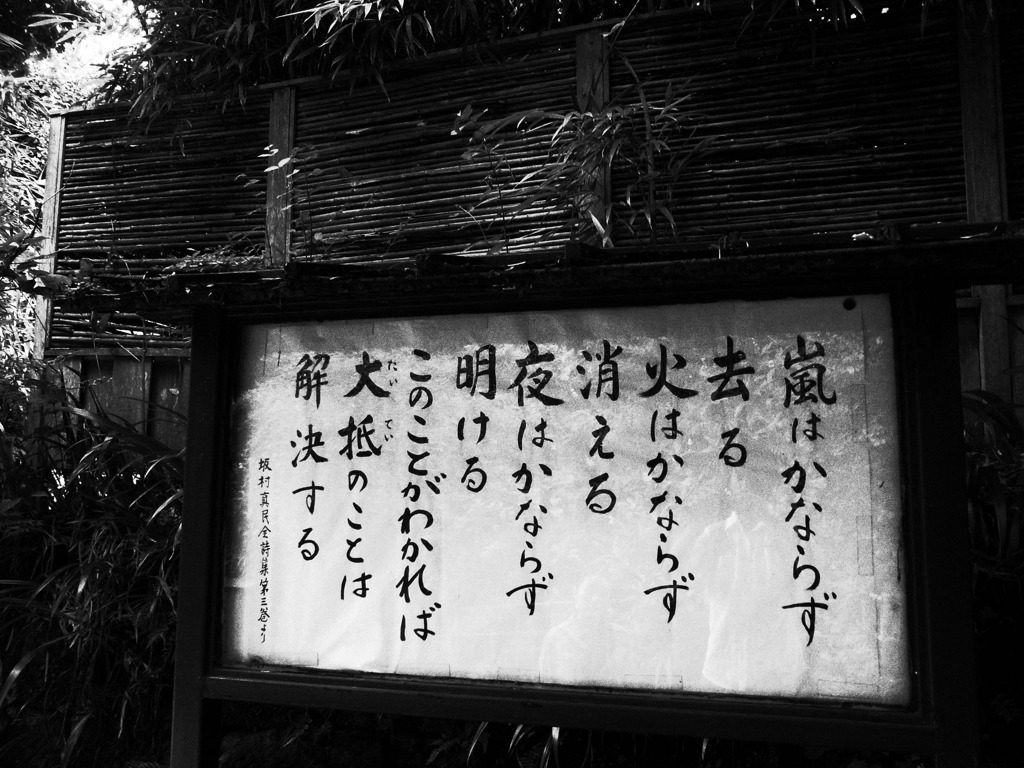 嵐はかならず
去る
火はかならず
消える
夜はかならず
明ける
このことがわかれば
大抵のことは
たいてい
解決する
坂村真民全詩集第三巻より